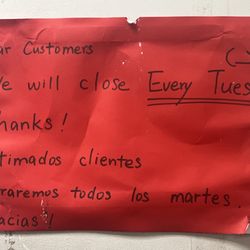 ar Customers
e will close Every Tues
hanks!
timados clientes
raremos todos los martes.
acias!